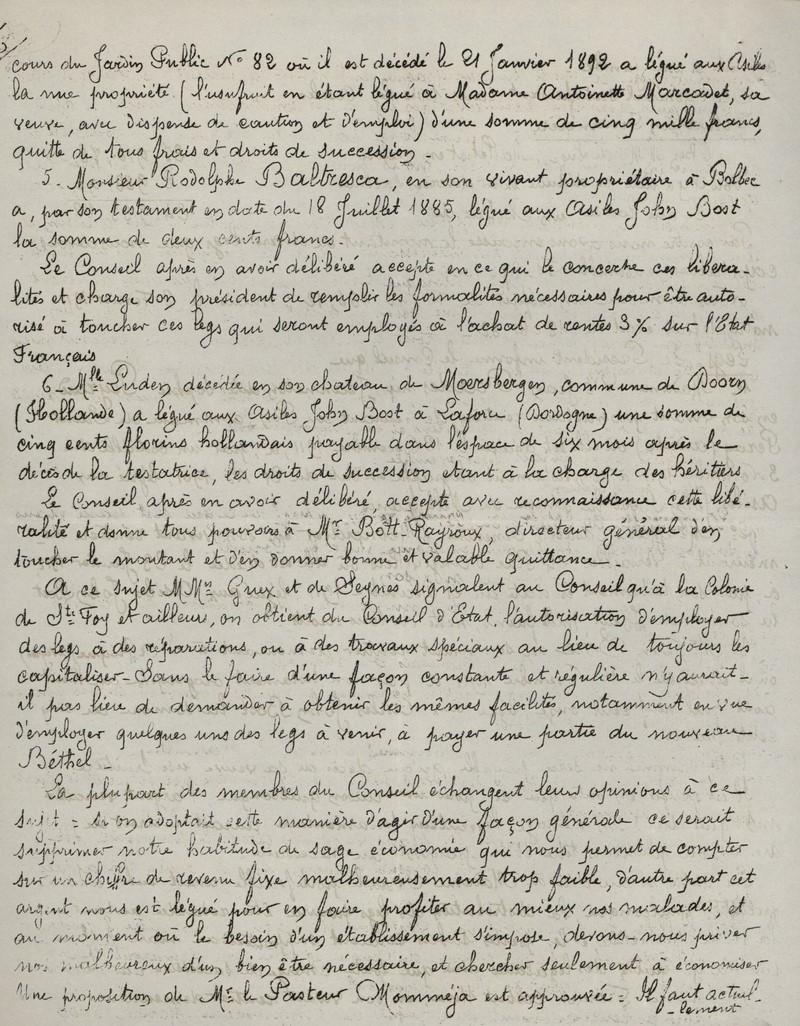 cours du Jardin Public No 82 où il est décédé le 21 Janvier 1892 a légué aux Asiles
la nue propriété (l'usufruit en étant légué à Madame Antoinette Marcadet, sa
veuve, avec dispense de caution et d'emploi) d'une somme de cinq mille francs,
quitte de tous frais et droits de succession -
5. Monsieur Rodolphe Baltresca, en son vivant propriétaire à Bolbec
a, par son testament en date du 18 Juillet 1885, légué aux Asiles John Bost
la somme de deux cents francs.
Le Conseil après en avoir délibéré accepte en ce qui le concerne ces libera-
lités et charge son président de remplir les formalités nécessaires pour être auto-
risé à toucher ces legs qui seront employés à l'achat de rentes 3% sur l'Etat
Français
6- Mlle Luden décédée en son chateau de Moersbergen, commune de Doorn
(Hollande) a légué aux Asiles John Bost à Laforce (Dordogne) une somme de
cinq cents florins hollandais payable dans l'espace de six mois après le
décès de la testatrice, les droits de succession etant à la charge des héritiers
Le Conseil, après en avoir délibéré, accepte avec reconnaissance cette libé-
ralité et donne tous pouvoirs à Mr Bott-Rayroux, directeur général d'en
toucher le montant et d'en donner bonne et valable quittance -
A ce sujet MMrs Guex et de Seynes signalent au Conseil qu'à la Colonie
de Ste Foy et ailleurs, on obtient du Conseil d'Etat, l'autorisation d'employer
des legs à des réparations, ou à des travaux spéciaux au lieu de toujours les
capitaliser- Sans le faire d'une façon constante et régulière n'y aurait-
il pas lieu de demander à obtenir les mêmes facilités, notamment en vue
d'employer quelques uns des legs à venir, à payer une partie du nouveau
Béthel -
La plupart des membres du Conseil échangent leurs opinions à ce
sujet = si on adoptait cette manière d'agir d'une façon générale ce serait
supprimer notre habitude de sage économie qui nous permet de compter
sur un chiffre de revenu fixe malheureusement trop faible, d'autre part cet
argent nous est légué pour en faire profiter au mieux nos malades, et
au moment où le besoin d'un établissement s'impose, devons-nous priver
nos malheureux d'un bien être nécessaire, et chercher seulement à économiser
Une proposition de Mr le Pasteur Momméja est approuvée = Il faut actuel-
-lement